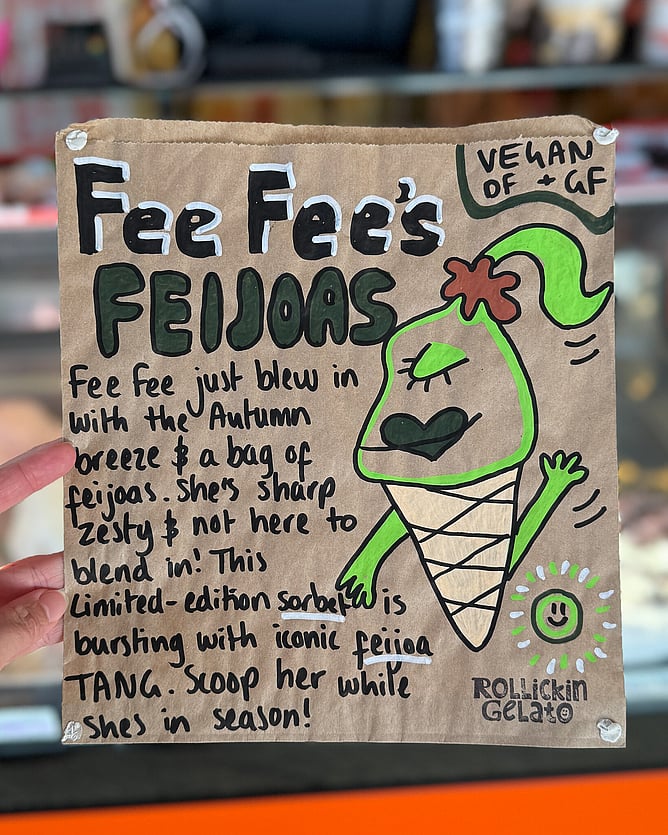 Fee Fee's
FEIJOAS
VEGAN
DF + GF
Fee Fee just blew in
with the Autumn
breeze & a bag of
feijoas. She's sharp
zesty & not here to
blend in! This
Limited-edition sorbet is
bursting with iconic feijoa
TANG. Scoop her while
shes in season!
ROLLICKIN
GELATO